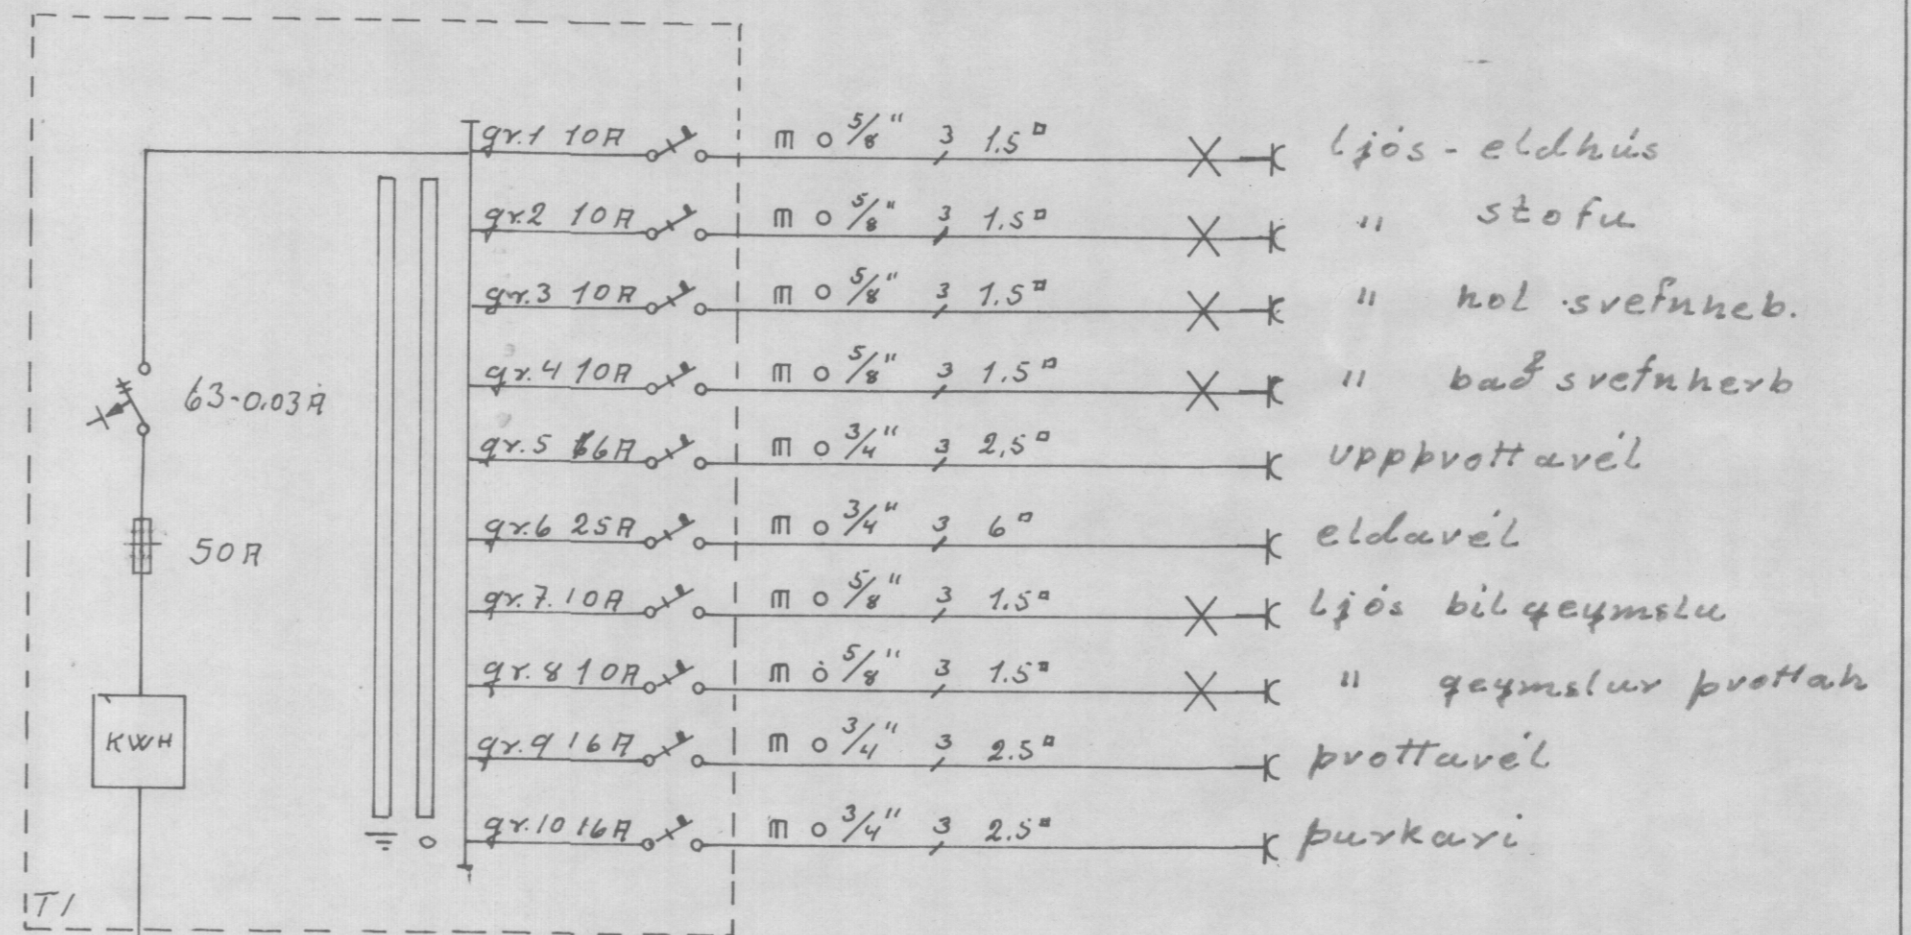 gr.1 10A m o 5/8" 3 1.5▫ ljós - eldhús
gr.2 10A m o 5/8" 3 1.5▫ " stofu
gr.3 10A m o 5/8" 3 1.5▫ " hol svefnheb.
gr.4 10A m o 5/8" 3 1.5▫ " bað svefnherb
63-0.03A
gr.5 16A m o 3/4" 3 2,5▫ uppþvottavél
gr.6 25A m o 3/4" 3 6▫ eldavél
50A
gr.7. 10A m o 5/8" 3 1.5▫ ljós bílgeymslu
gr.8 10A m o 5/8" 3 1.5▫ " geymslur þvottah
KWH
gr.9 16A m o 3/4" 3 2.5▫ þvottavél
gr.10 16A m o 3/4" 3 2.5▫ þurkari
T1